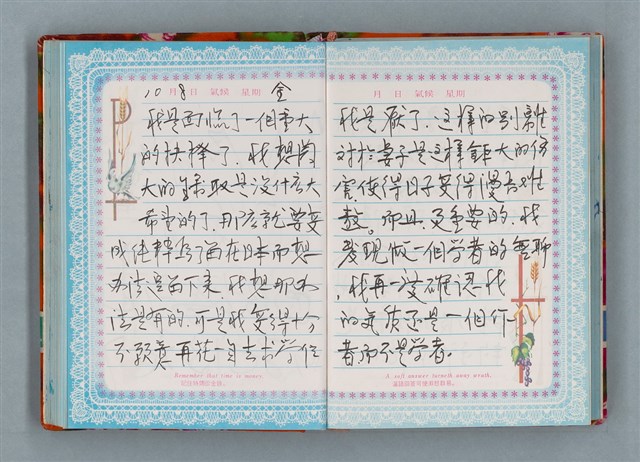 10月8日 氣候 星期 金
我是面臨了一個重大
的抉擇了。我想
大的錄取是没什么大
希望的了,那麼就要變
成純粹為了留在日本而想
办法遛留下来,我想那办
法是有的,可是我變得十分
不願意再花一年去求學位
Remember that time is money.
記住時間即金錢。
月 日 氣候 星期
我是厭了,這樣的別離
对於妻子是这樣鉅大的伤
害,使得日子変得漫長難
。而且,更重要的,我
發現做一個学者的無聊
,我再一度確認我
的氣质还是一個作
者而不是学者。
A soft answer turneth away wrath.
溫語回答可使怒氣消。